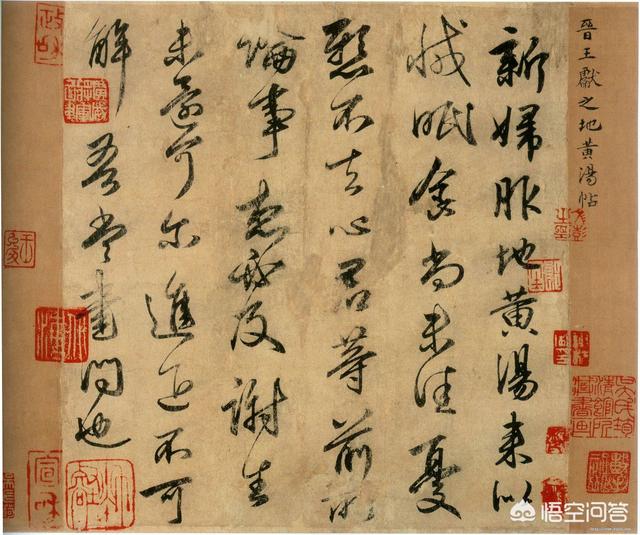 晉王獻之地黃湯帖
新婦服地黃湯來似
減眠食尚未佳憂
懸不去心君等前所
論事想必及謝生
未還何爾進退不可
解吾當書問也
悟空问答